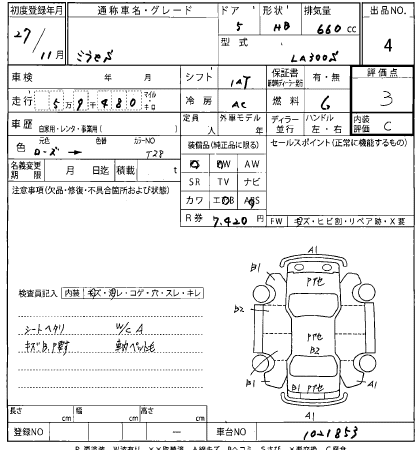 初度登録年月 通称車名・グレード ドア 形状 排気量 出品NO.
27 5 HB 660 cc
11月 ミライース 型式 LA300S 4
車検 年 月 シフト IAT 保証書 有・無 評価点
走行 5 9 千 480 マイル キロ 冷房 AC 燃料 G 3
車歴 自家用・レンタ・事業用( ) 定員 人 外車モデル 年 ディラー 並行 ハンドル 左・右 内装 評価 C
色 元色 ローズ → 色替 カラーNO T29 装備品(純正品に限る) セールスポイント(正常に機能するもの)
名義変更 期限 月 日迄 積載 t PW AW
SR TV ナビ
注意事項(欠品・修復・不具合箇所および状態) カワ エアB ABS
R券 7,420円 FW キズ・ヒビ割・リペア跡・X要
A1
B1 P他
検査員記入 内装 キズ・汚レ・コゲ・穴・スレ・キレ B2 P他
シートヘタリ W/C A B2
キズB,P錆 動ペット毛 B1 P他 A1
A1
長さ cm 幅 cm 高さ cm
登録NO ー 車台NO 1021853